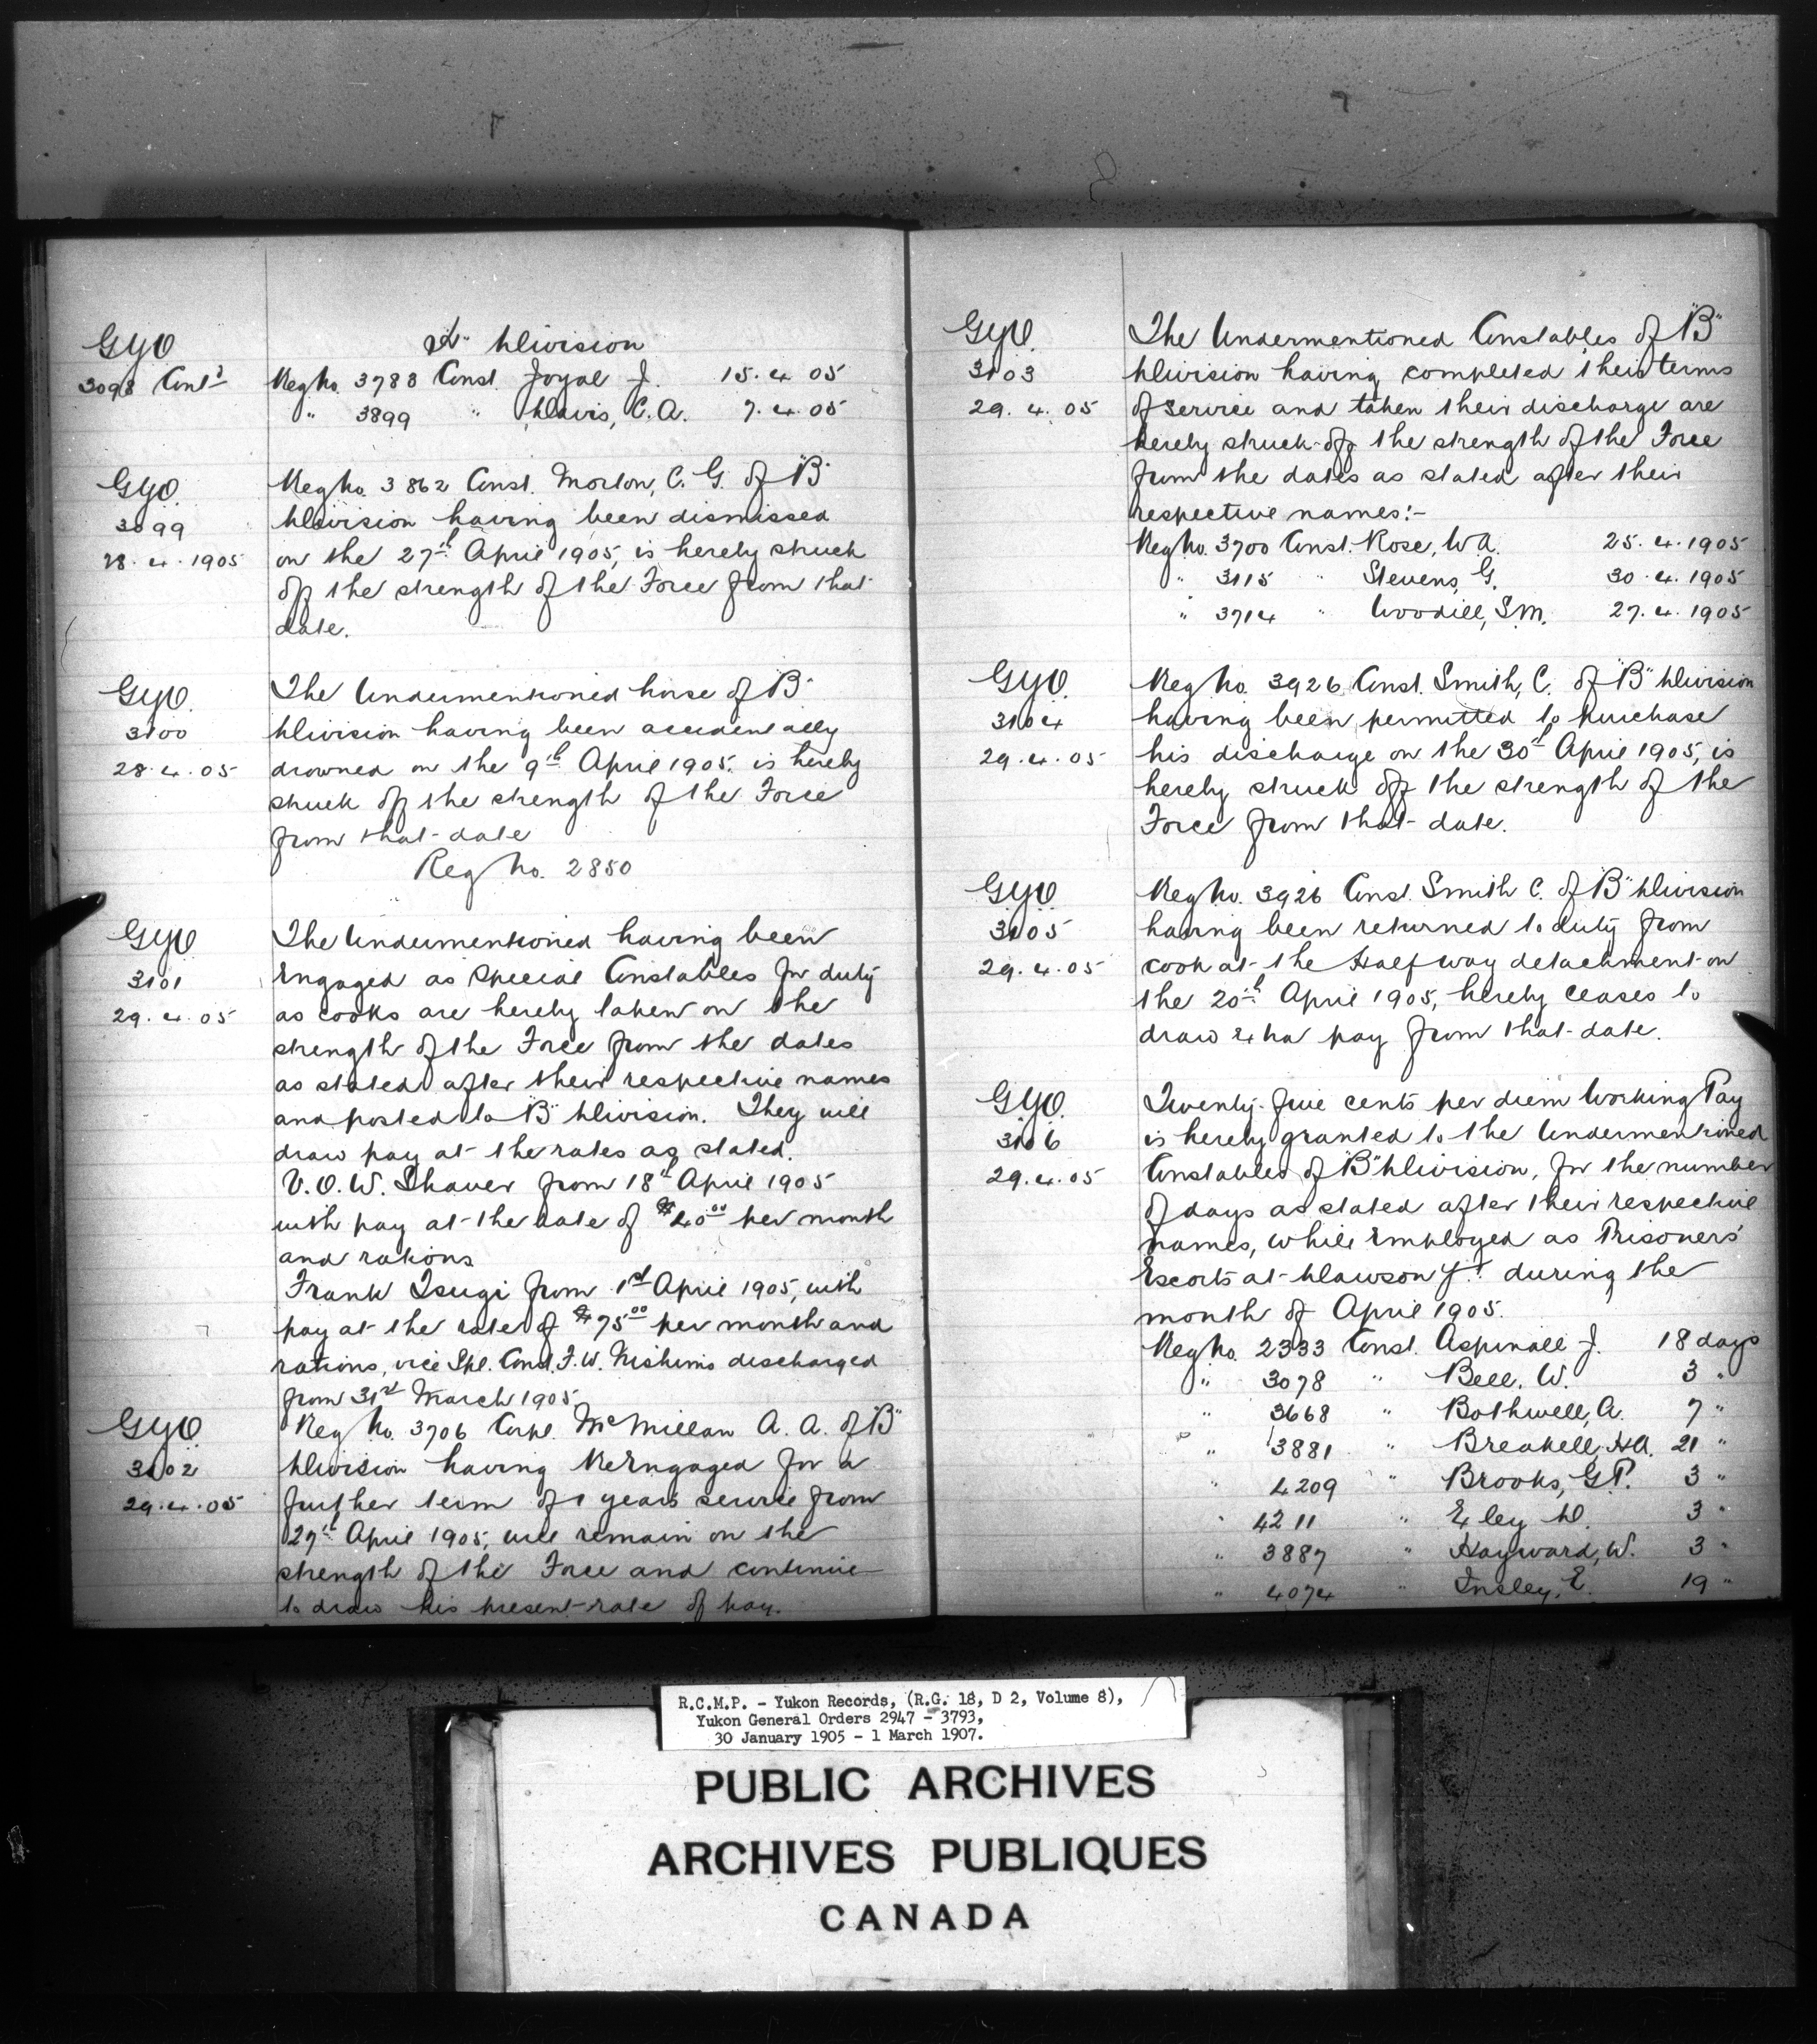 GYO
3098 Contd
"H" Division
Reg No. 3783 Const. Joyal J. 15.4.05
" 3899 " Davis, C.A. 7.4.05
GYO.
3099
28.4.1905
Reg No. 3862 Const. Morton, C. G. of "B"
Division having been dismissed
on the 27th April 1905, is hereby struck
off the strength of the Force from that
date.
GYO.
3100
28.4.05
The Undermentioned horse of "B"
Division having been accidentally
drowned on the 9th April 1905. is hereby
struck off the strength of the Force
from that date
Reg No. 2850
GYO
3101
29.4.05
The Undermentioned having been
Engaged as Special Constables for duty
as cooks are hereby taken on the
strength of the Force from the dates
as stated after their respective names
and posted to "B" Division. They will
draw pay at the rates as stated.
V.O.W. Shaver from 18th April 1905
with pay at the rate of $40.00 per month
and rations
Frank Tsugi from 1st April 1905, with
pay at the rate of $75.00 per month and
rations, vice Spl. Const. F.W. Nishims discharged
from 31st March 1905.
GYO.
3102
29.4.05
Reg No. 3706 Corpl. McMillan A. A. of "B"
Division having ReEngaged for a
further term of 1 years service from
27th April 1905, will remain on the
strength of the Force and continue
to draw his present rate of pay.
GYO.
3103
29.4.05
The Undermentioned Constables of "B"
Division having completed their terms
of service and taken their discharge are
hereby struck off the strength of the Force
from the dates as stated after their
respective names:-
Reg No. 3700 Const. Rose, W.A. 25.4.1905
" 3115 " Stevens, G. 30.4.1905
" 3714 " Woodill, S.M. 27.4.1905
GYO.
3104
29.4.05
Reg No. 3926 Const. Smith, C. of "B" Division
having been permitted to purchase
his discharge on the 30th April 1905, is
hereby struck off the strength of the
Force from that date.
GYO.
3105
29.4.05
Reg No. 3926 Const. Smith C. of "B" Division
having been returned to duty from
cook at the Halfway detachment on
the 20th April 1905, hereby ceases to
draw Extra pay from that date.
GYO.
3106
29.4.05
Twenty-five cents per diem Working Pay
is hereby granted to the Undermentioned
Constables of "B" Division, for the number
of days as stated after their respective
names, while Employed as Prisoners'
Escorts at Dawson Y.T. during the
month of April 1905.
Reg No. 2333 Const. Aspinall J. 18 days
" 3078 " Bell, W. 3 "
" 3668 " Bothwell, A. 7 "
" 3881 " Breakell, HA. 21 "
" 4209 " Brooks, G.P. 3 "
" 4211 " Exley D. 3 "
" 3887 " Hayward, W. 3 "
" 4074 " Insley, E. 19 "
R.C.M.P. - Yukon Records, (R.G. 18, D 2, Volume 8),
Yukon General Orders 2947 - 3793,
30 January 1905 - 1 March 1907.
PUBLIC ARCHIVES
ARCHIVES PUBLIQUES
CANADA